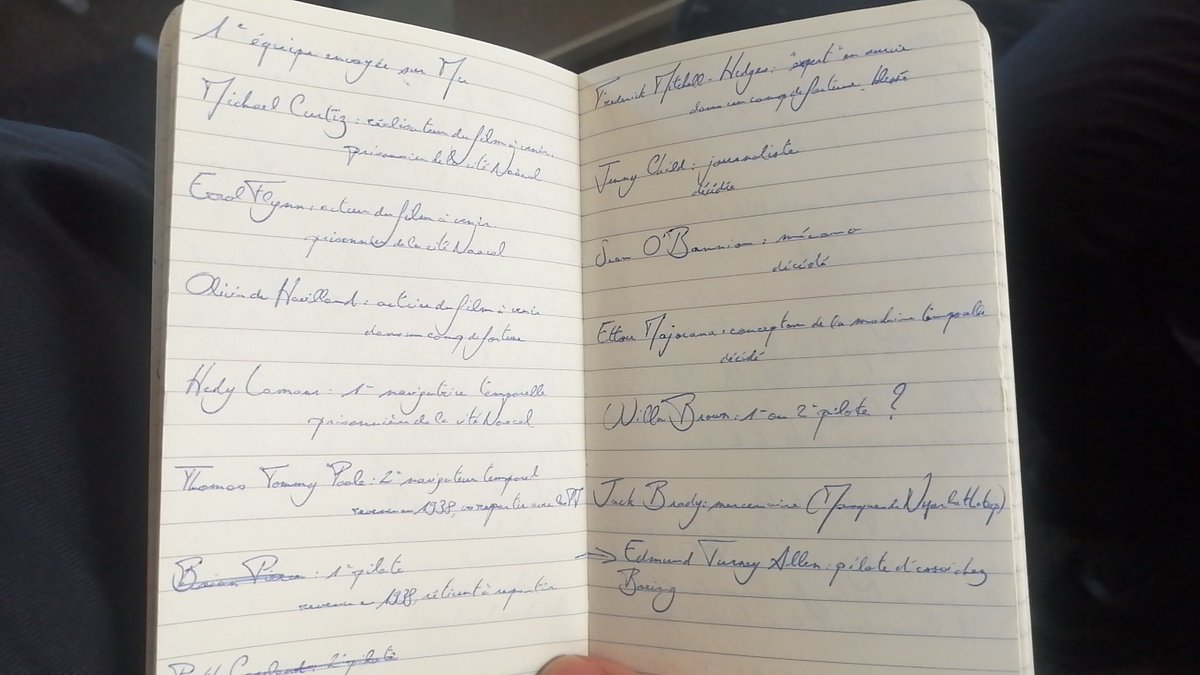 1e équipe envoyée sur Mu
Michael Curtiz : réalisateur du film à venir.
prisonnier de la cité Naacal
Errol Flynn : acteur du film à venir.
prisonnier de la cité Naacal
Olivia de Havilland : actrice du film à venir
dans un camp de fortune
Hedy Lamarr : 1e navigatrice temporelle
prisonnière de la cité Naacal
Thomas "Tommy" Poole : 2e navigateur temporel
revenu en 1938, va repartir avec les PJ
: 1e pilote
revenu en 1938, réticent à repartir
: 2e pilote
Frederick Mitchell-Hedges : "expert" en survie
dans un camp de fortune. blessé
Jenny Child : journaliste
décédée
Sean O'Bannion : mécano
décédé
Ettore Majorana : concepteur de la machine temporelle
décidé
Willa Brown : 1e ou 2e pilote ?
Jack Brady : mercenaire (Masques de Nyarlathotep)
→ Edmund Turney Allen : pilote d'essai chez
Boeing